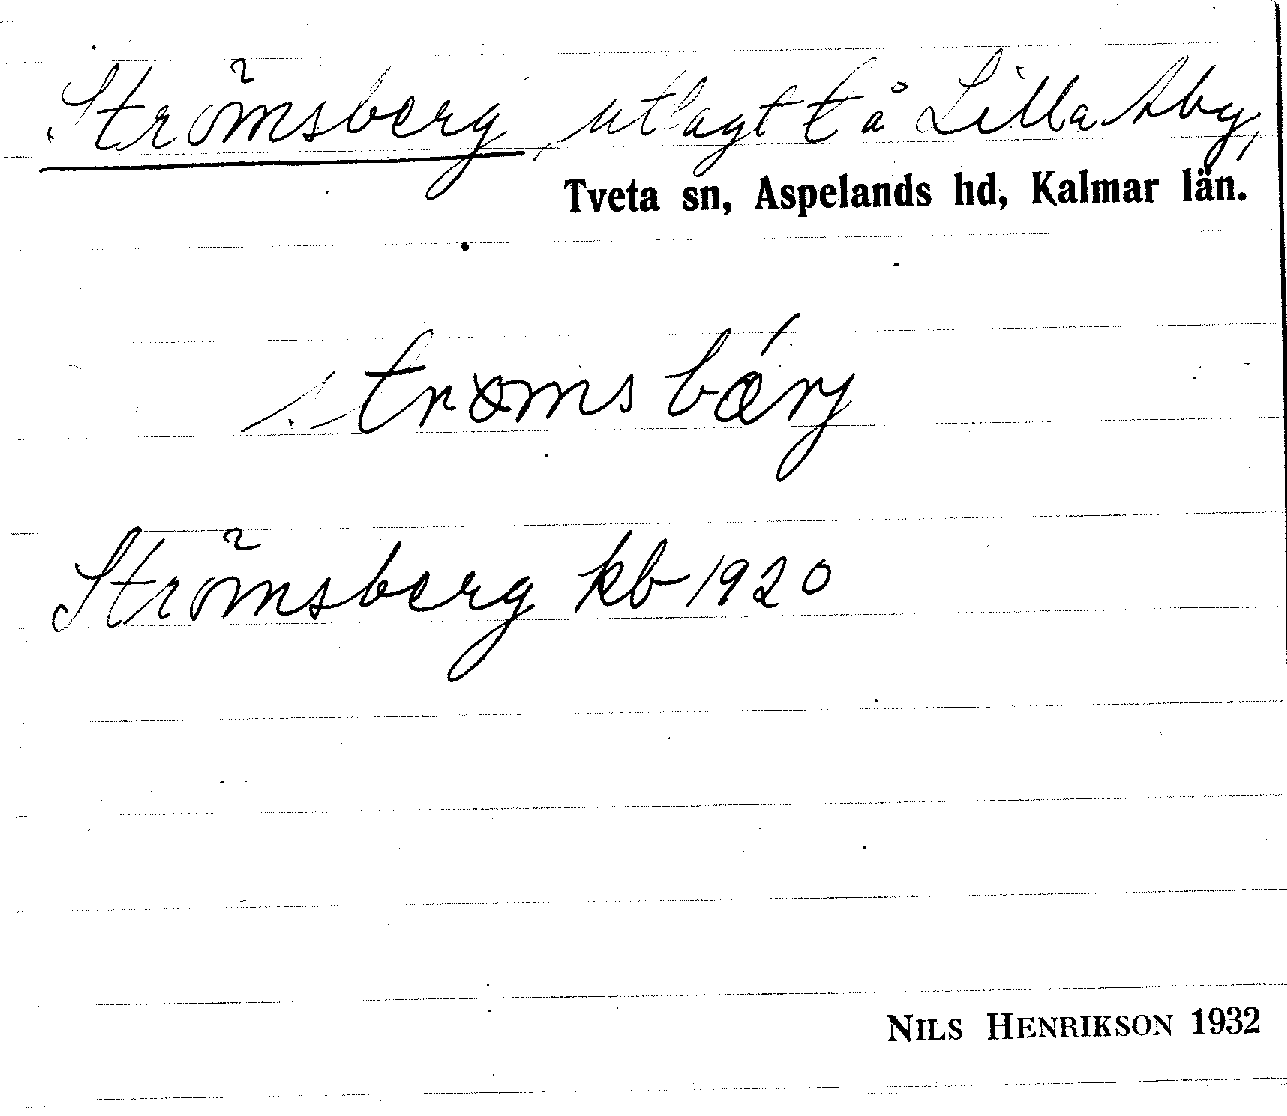 Strömsberg, utlagt t å Lilla Aby,
Tveta sn, Aspelands hd, Kalmar län.
strømsbǽrj
Strömsberg kb 1920
NILS HENRIKSON 1932